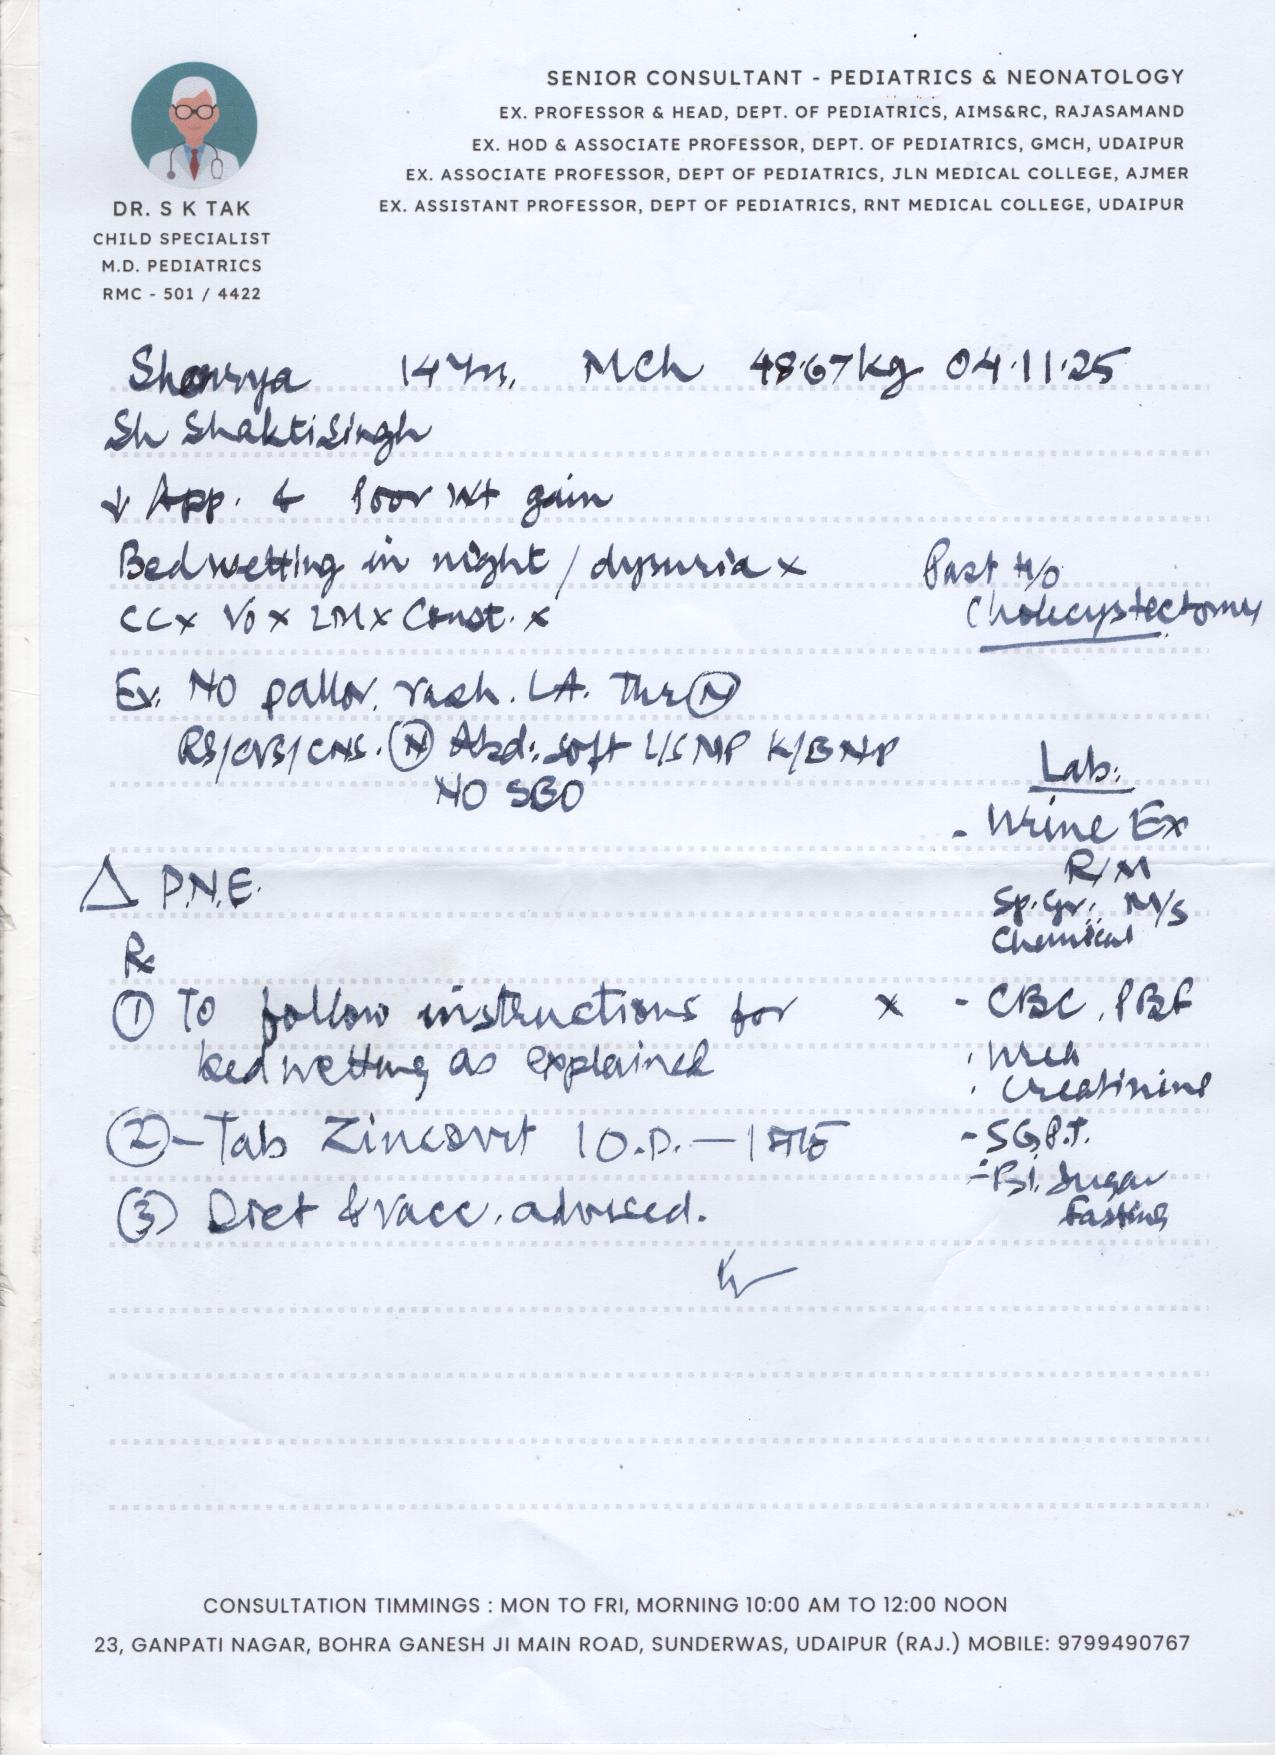 SENIOR CONSULTANT - PEDIATRICS & NEONATOLOGY
EX. PROFESSOR & HEAD, DEPT. OF PEDIATRICS, AIMS&RC, RAJASAMAND
EX. HOD & ASSOCIATE PROFESSOR, DEPT. OF PEDIATRICS, GMCH, UDAIPUR
EX. ASSOCIATE PROFESSOR, DEPT OF PEDIATRICS, JLN MEDICAL COLLEGE, AJMER
EX. ASSISTANT PROFESSOR, DEPT OF PEDIATRICS, RNT MEDICAL COLLEGE, UDAIPUR
DR. S K TAK
CHILD SPECIALIST
M.D. PEDIATRICS
RMC - 501 / 4422
14 Yrs. MCh 48.67kg 04.11.25
Sh Shakti Singh
↓ App. & Poor Wt gain
Bedwetting in night / dysuria x
CC x Vo x LM x Const. x
Past H/o
Cholecystectomy
Ex. NO pallor, rash. LA. Thr (N)
RS/CVS/CNS. (N) Abd: soft L/S NP K/B NP
NO SBO
△ P.N.E.
Rx
① To follow instructions for x
bedwetting as explained
② - Tab Zincovit 1 O.D. —
③ Diet & vacc. advised.
Lab:
- Urine Ex
R/M
Sp. Gr. M/S
Chemical
- CBC, PBF
. Urea
. Creatinine
- SGPT.
- Bl. Sugar
fasting
CONSULTATION TIMMINGS : MON TO FRI, MORNING 10:00 AM TO 12:00 NOON
23, GANPATI NAGAR, BOHRA GANESH JI MAIN ROAD, SUNDERWAS, UDAIPUR (RAJ.) MOBILE: 9799490767